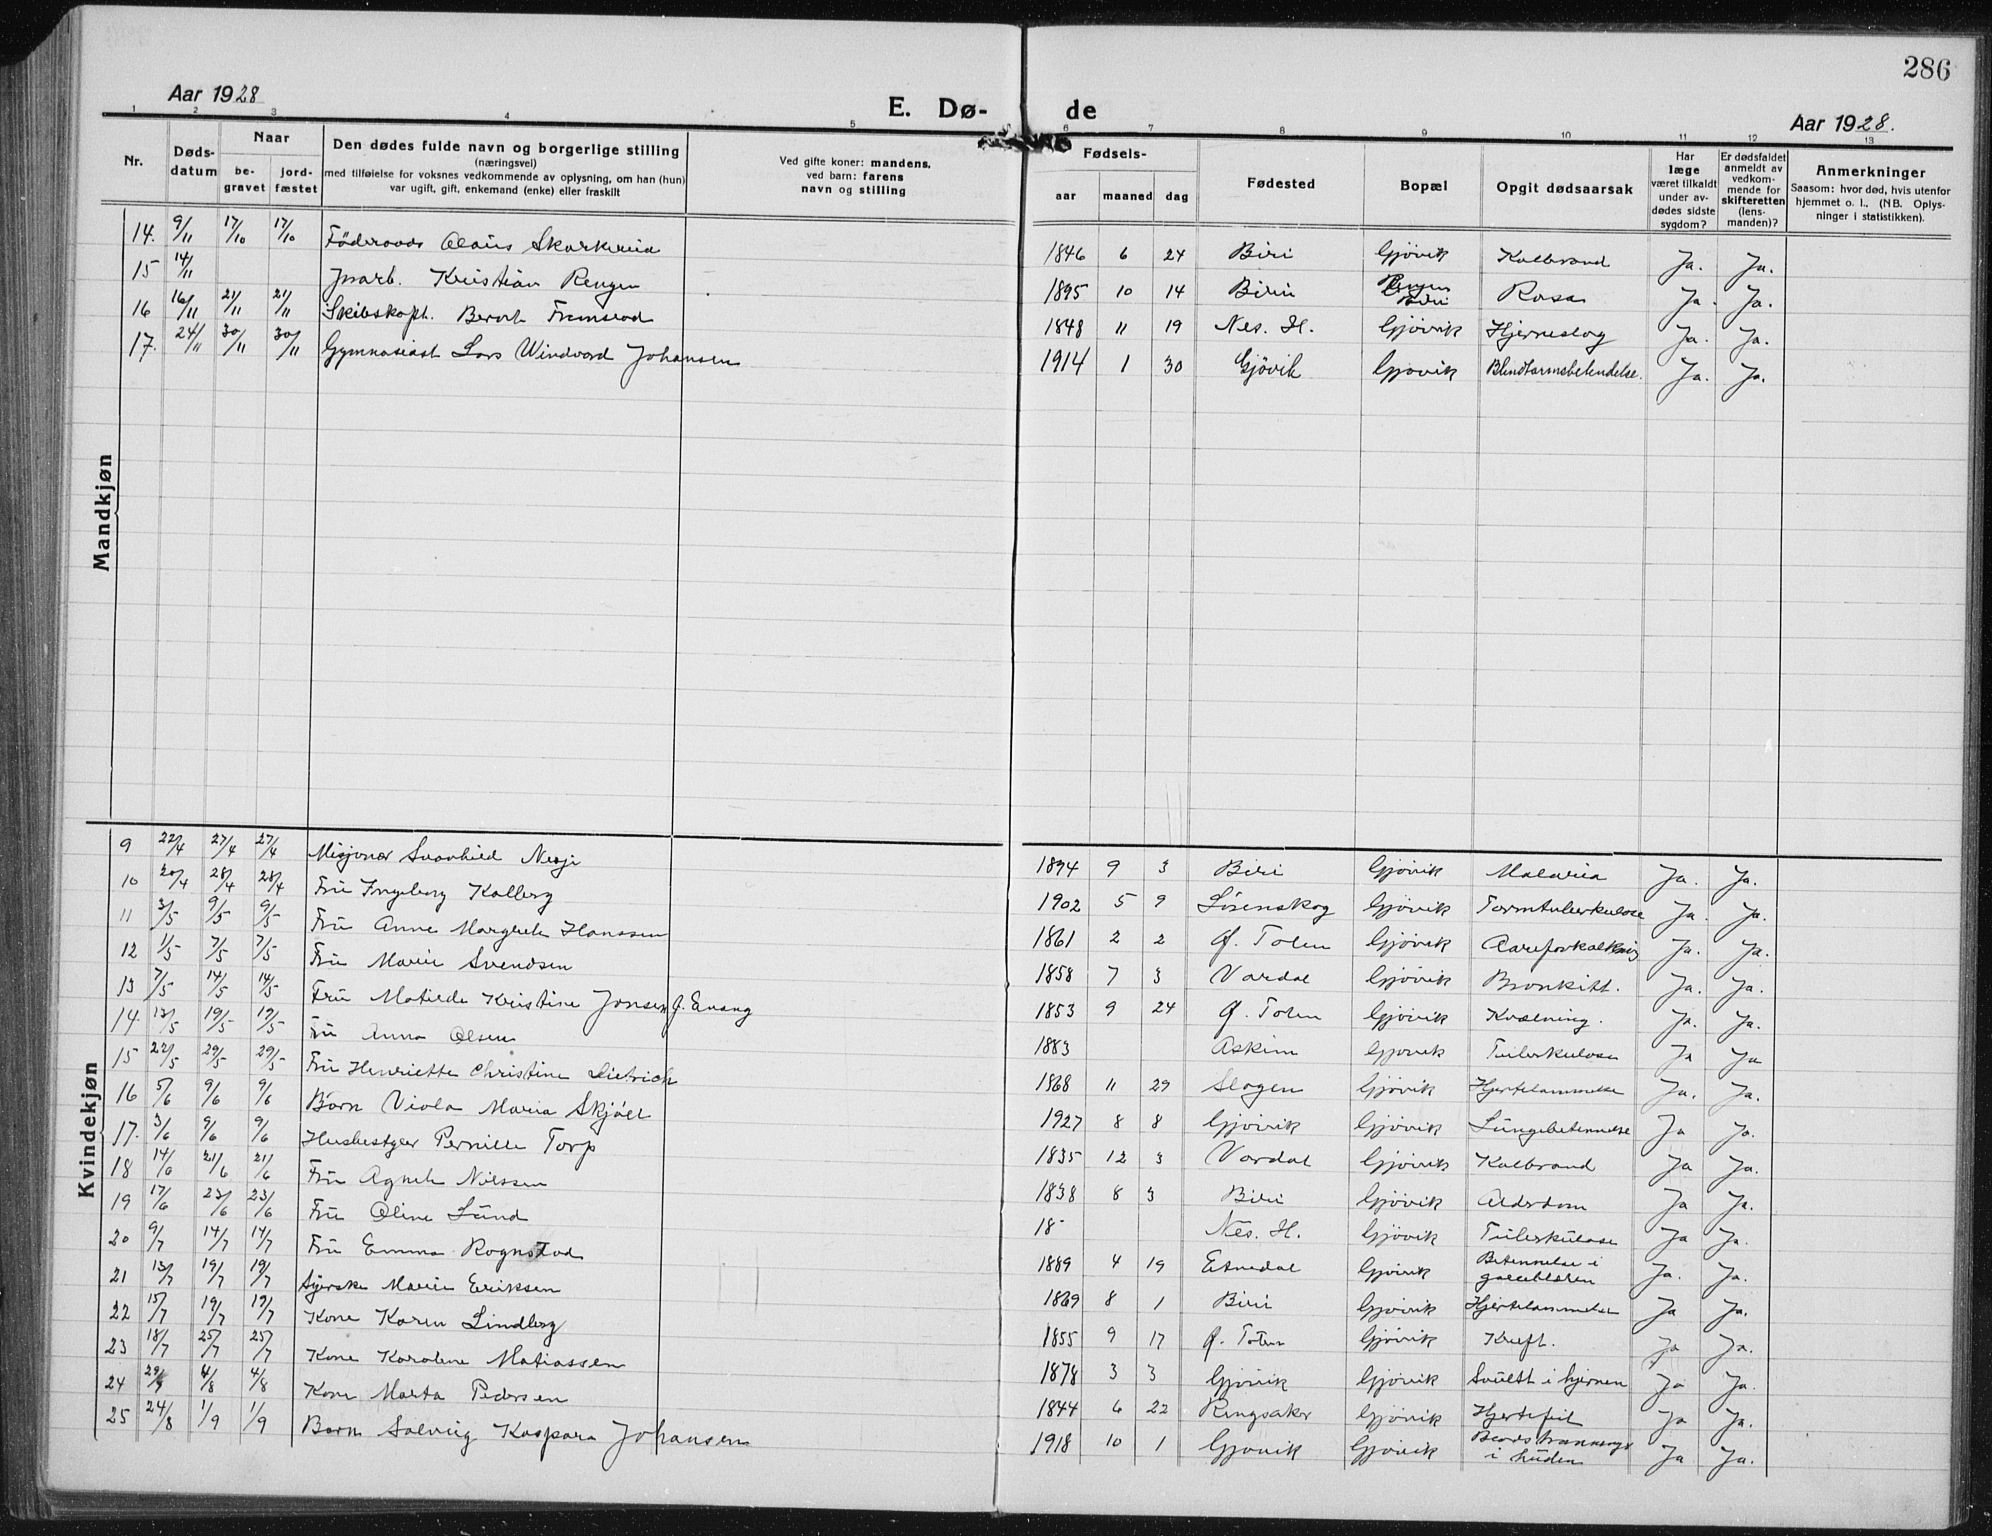 286
Aar 1928
E. Dø-
de
Aar 1928.
1 2 3 4 5 6 7 8 9 10 11 12 13
Nr.
Døds-
datum
Naar
be-
gravet
jord-
fæstet
Den dødes fulde navn og borgerlige stilling
(næringsvei)
med tilføielse for voksnes vedkommende av oplysning, om han (hun)
var ugift, gift, enkemand (enke) eller fraskilt
Ved gifte koner: mandens,
ved barn: farens
navn og stilling
Fødsels-
aar
maaned
dag
Fødested
Bopæl
Opgit dødsaarsak
Har
læge
været tilkaldt
under av-
dødes sidste
sygdom?
Er dødsfaldet
anmeldt av
vedkom-
mende for
skifteretten
(lens-
manden)?
Anmerkninger
Saasom: hvor død, hvis utenfor
hjemmet o. l., (NB. Oplys-
ninger i statistikken).
Mandkjøn
14. 9/11 17/10 17/10 Föderaads Olaüs 1846 6 24 Biri Gjövik Kolbrand Ja. Ja.
15 14/11 Jparb. Kristian Rengen 1895 10 14 Biri Rengen Biri Ja. Ja.
16 16/11 21/11 21/11 Skibskapt. 1848 11 19 Nes. H. Gjövik Hjerneslag Ja. Ja.
17. 24/11 30/11 30/11 Gymnasiast Lars Windvard Johansen 1914 1 30 Gjövik Gjövik Blindtarmsbetendelse. Ja. Ja.
Kvindekjøn
9 22/4 27/4 27/4 Misjonær 1894 9 3 Biri Gjövik Malaria Ja. Ja.
10 20/4 28/4 28/4 Frü Ingeborg Kolberg 1902 5 9 Lörenskog Gjövik Tarmtuberkulose Ja. Ja.
11 3/5 9/5 9/5 Frü Anne Margrete Hanssen 1861 2 2 Ø. Toten Gjövik Aareforkalkning Ja. Ja.
12 1/5 7/5 7/5 Frü Marie Svendsen 1858 7 3 Vardal Gjövik Bronkitt. Ja. Ja.
13 7/5 14/5 14/5 Frü Matilde Kristine Jonsen f. Enang 1853 9 24 Ø. Toten Gjövik Kvælning. Ja. Ja.
14. 13/5 19/5 19/5 Frü Anna Olsen 1883 Askim Gjövik Tüberkülose Ja Ja
15 22/5 29/5 29/5 Frü Henriette Christine Dietrich 1868 11 29 Slagen Gjövik Hjertelammelse Ja. Ja.
16 5/6 9/6 9/6 Barn Viola Maria Skjöll 1927 8 8 Gjövik Gjövik Lüngebetennelse Ja Ja.
17. 3/6 9/6 9/6 Husbestyer Pernille Torp 1835 12 3 Vardal Gjövik Kolbrand Ja Ja.
18 14/6 21/6 21/6 Frü Agnete Nilssen 1838 8 3 Biri Gjövik Alderdom Ja Ja.
19 17/6 23/6 23/6 Frü Oline Lünd 18- Nes. H. Gjövik Tüberkülose Ja Ja.
20 9/7 14/7 14/7 Frü Emma Rognstad 1889 4 19 Etnedal Gjövik Betennelse i galleblæren Ja. Ja.
21 13/7 19/7 19/7 Syerske Marie Eriksen 1869 8 1 Biri Gjövik Hjertelammelse Ja Ja.
22 15/7 19/7 19/7 Kone Karen Lindberg 1855 9 17 Ø. Toten Gjövik Kreft. Ja Ja.
23 18/7 25/7 25/7 Kone Karoline Matiassen 1878 3 3 Gjövik Gjövik Svülst i hjernen Ja Ja.
24 4/8 4/8 Kone Marta Pedersen 1844 6 22 Ringsaker Gjövik Hjertefeil Ja Ja.
25 24/8 1/9 1/9 Barn Solveig Kaspara Johansen 1918 10 1 Gjövik Gjövik i hüden Ja Ja.